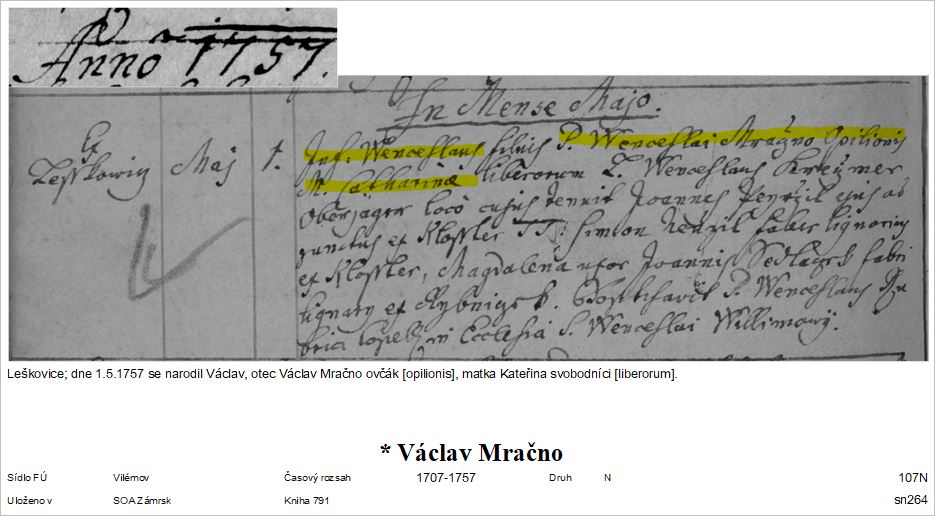 Anno 1757.
In Mense Majo.
Ex
Lesskowicz Maj 1.
Inf. Wenceslaus filius P. Wenceslai Mračno Opilionis
M. Catharinæ liberorum L. Wenceslaus
Oberjäger locò cujus tenuit Joannes ejus ad
junctus ex Klosster TT Simon faber lignarius
ex Klosster, Magdalena uxor Joannis Sedlaczek fabri
lignarij ex Rybniczek. Baptisavit P. Wenceslaus
in Ecclesia S. Wenceslai Willimowij.
Leškovice; dne 1.5.1757 se narodil Václav, otec Václav Mračno ovčák [opilionis], matka Kateřina svobodníci [liberorum].
* Václav Mračno
Sídlo FÚ Vilémov Časový rozsah 1707-1757 Druh N 107N
Uloženo v SOA Zámrsk Kniha 791 sn264